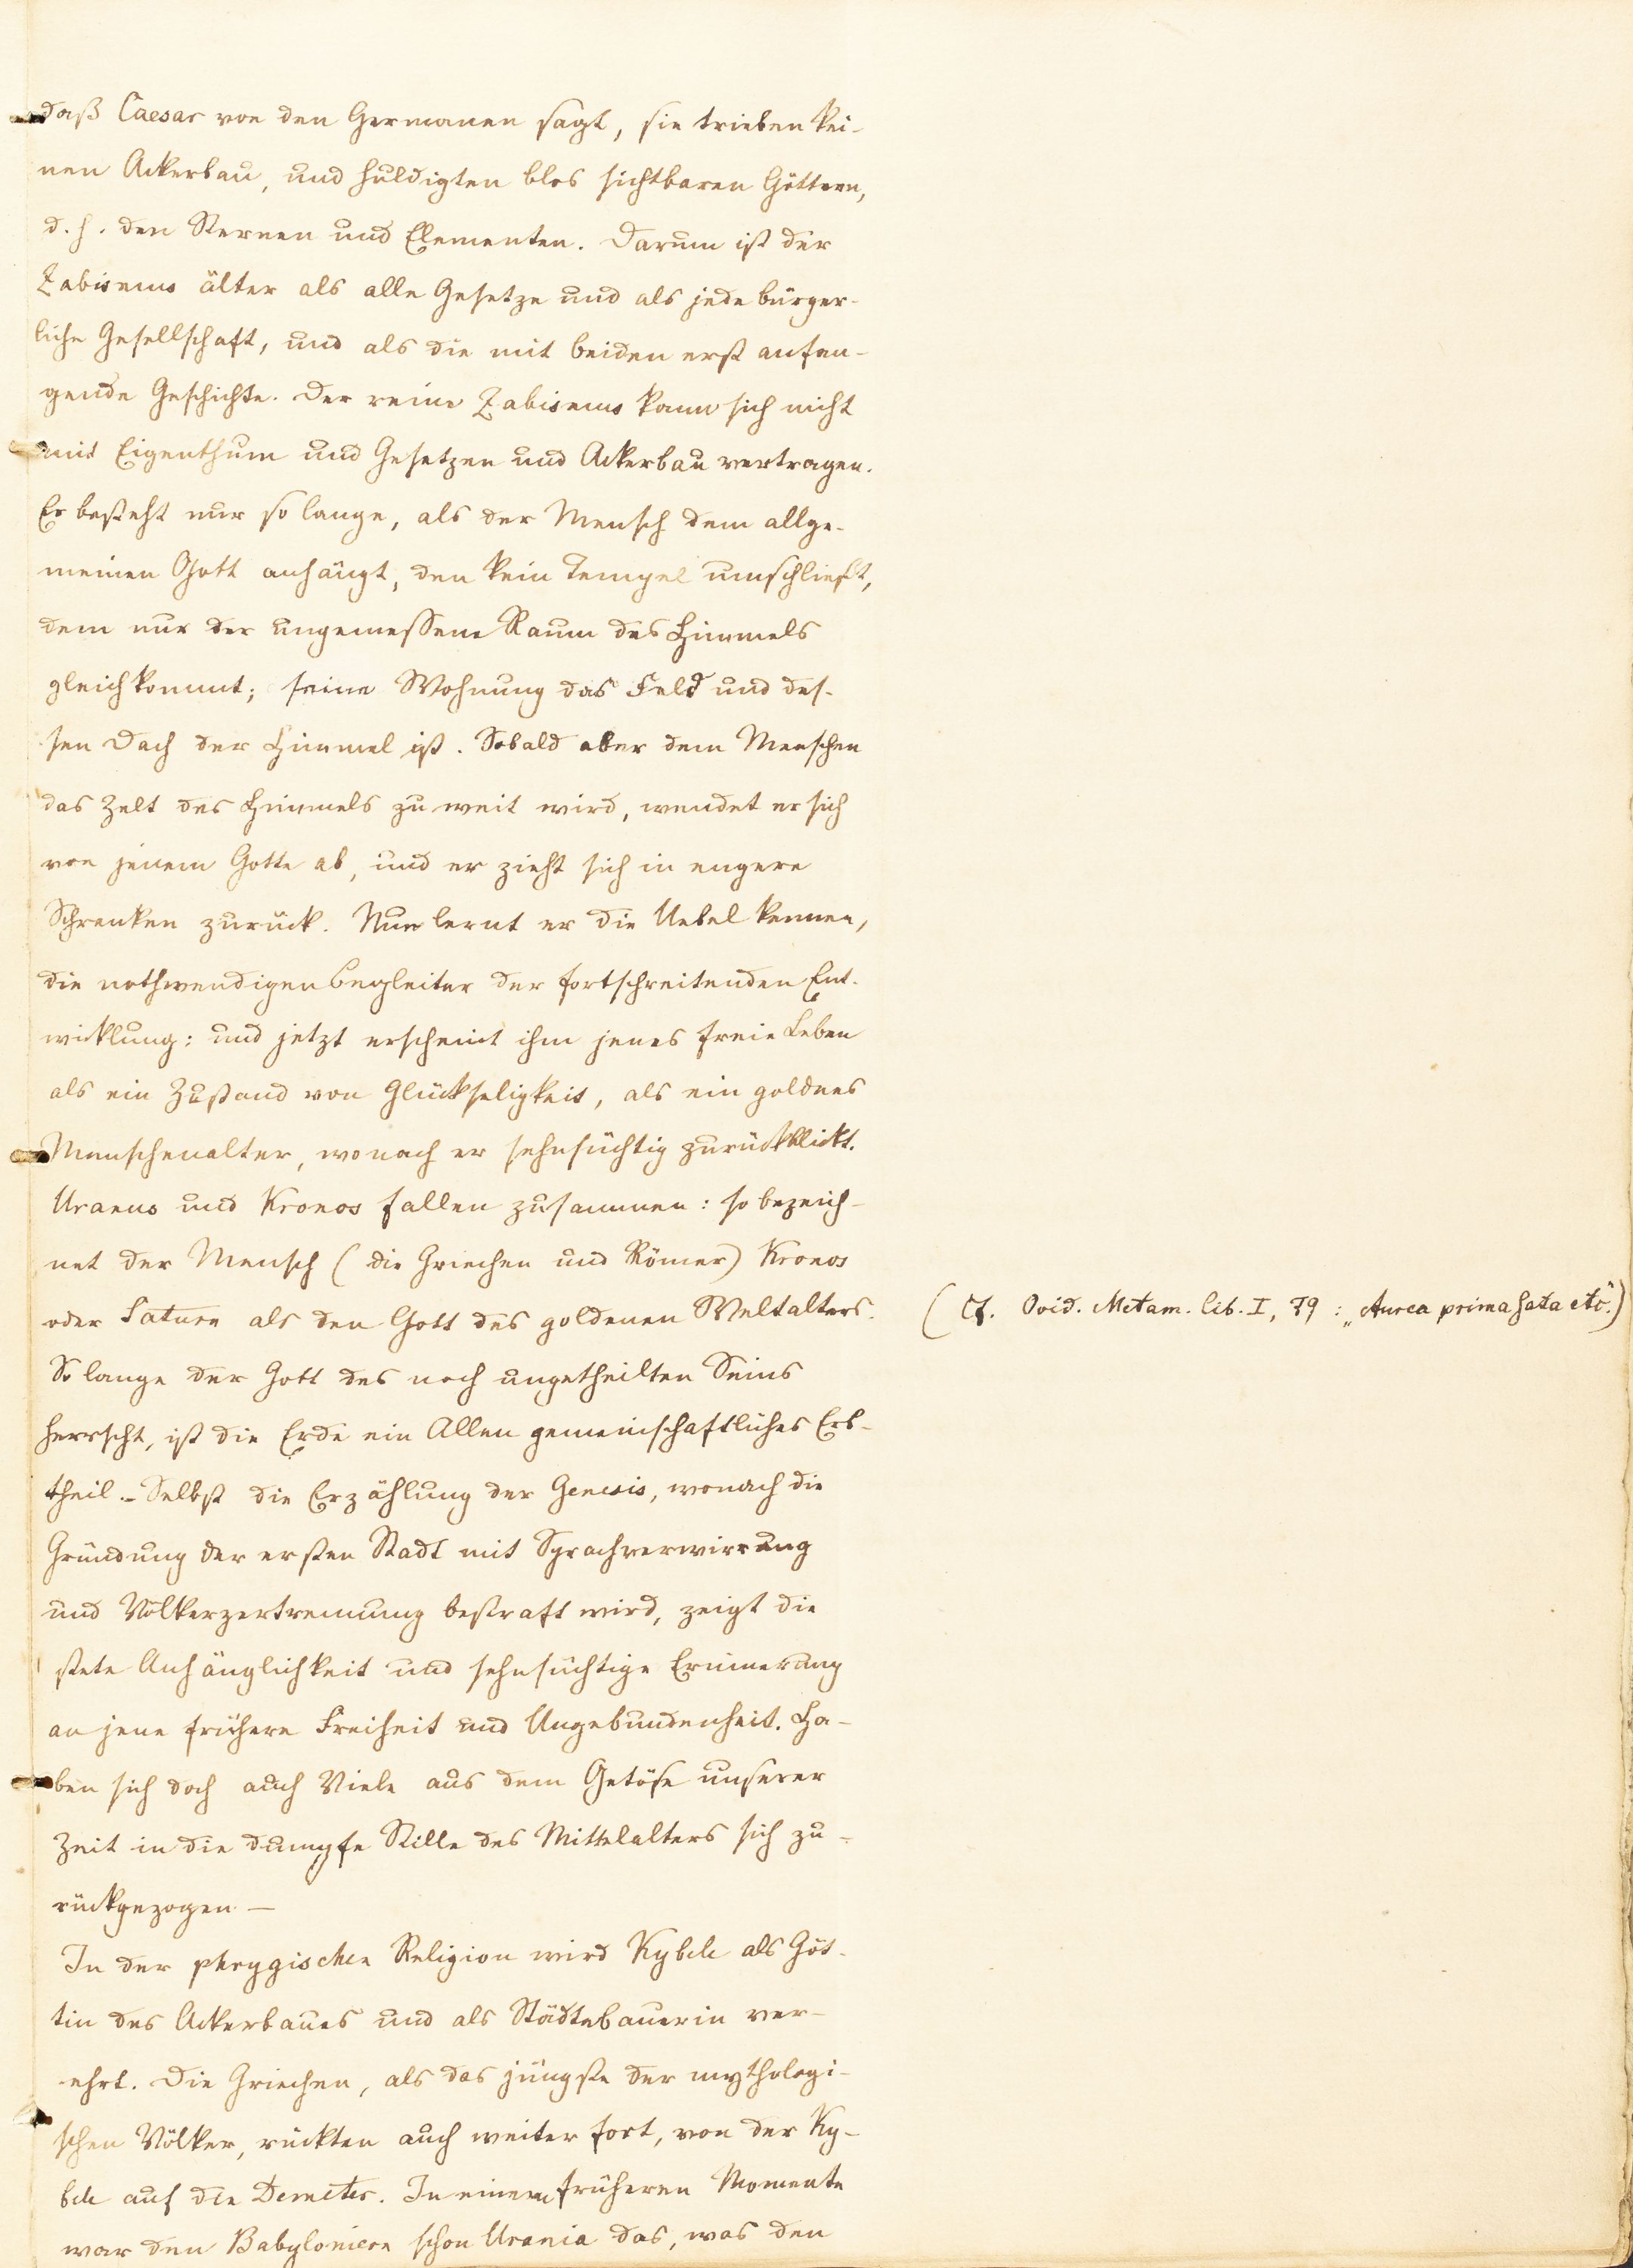 daß Caesar von den Germanen sagt, sie trieben kei-
nen Ackerbau, und huldigten blos sichtbaren Göttern,
d. h. den Sternen und Elementen. Darum ist der
Zabismus älter als alle Gesetze und als jede bürger-
liche Gesellschaft, und als die mit beiden erst anfan-
gende Geschichte. Der reine Zabismus kann sich nicht
mit Eigenthum und Gesetzen und Ackerbau vertragen.
Er besteht nur so lange, als der Mensch dem allge-
meinen Gott anhängt, den kein Tempel umschließt,
dem nur der ungemessene Raum des Himmels
gleichkommt; seine Wohnung das Feld und des-
sen Dach der Himmel ist. Sobald aber dem Menschen
das Zelt des Himmels zu weit wird, wendet er sich
von jenem Gotte ab, und er zieht sich in engere
Schranken zurück. Nun lernt er die Uebel kennen,
die nothwendigen Begleiter der fortschreitenden Ent-
wicklung: und jetzt erscheint ihm jenes freie Leben
als ein Zustand von Glückseligkeit, als ein goldnes
Menschenalter, wonach er sehnsüchtig zurückblickt.
Uranus und Kronos fallen zusammen: so bezeich-
net der Mensch (die Griechen und Römer) Kronos
oder Saturn als den Gott des goldenen Weltalters.
(Cf. Ovid. Metam. lib. I, 79: „Aurea prima sata etc.")
So lange der Gott des noch ungetheilten Seins
herrscht, ist die Erde ein Allen gemeinschaftliches Erb-
theil. – Selbst die Erzählung der Genesis, wonach die
Gründung der ersten Stadt mit Sprachverwirrung
und Völkerzertrennung bestraft wird, zeigt die
stete Anhänglichkeit und sehnsüchtige Erinnerung
an jene frühere Freiheit und Ungebundenheit. Ha-
ben sich doch auch Viele aus dem Getöse unserer
Zeit in die dumpfe Stille des Mittelalters sich zu-
rückgezogen —
In der phrygischen Religion wird Kybele als Göt-
tin des Ackerbaues und als Städtebauerin ver-
ehrt. Die Griechen, als das jüngste der mythologi-
schen Völker, rückten auch weiter fort, von der Ky-
bele auf die Demeter. In einem früheren Momente
war den Babyloniern schon Urania das, was den